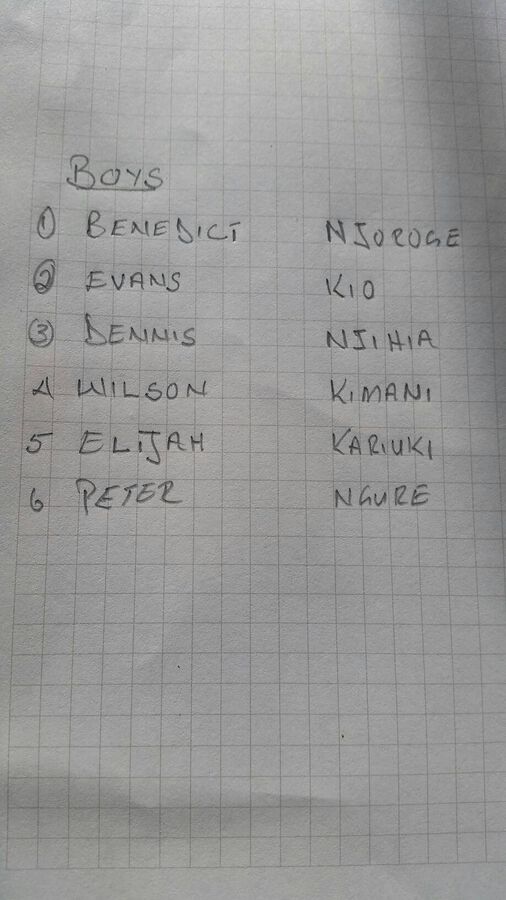 BOYS
① BENEDICT NJOROGE
② EVANS KIO
③ DENNIS NJIHIA
4 WILSON KIMANI
5 ELIJAH KARIUKI
6 PETER NGURE